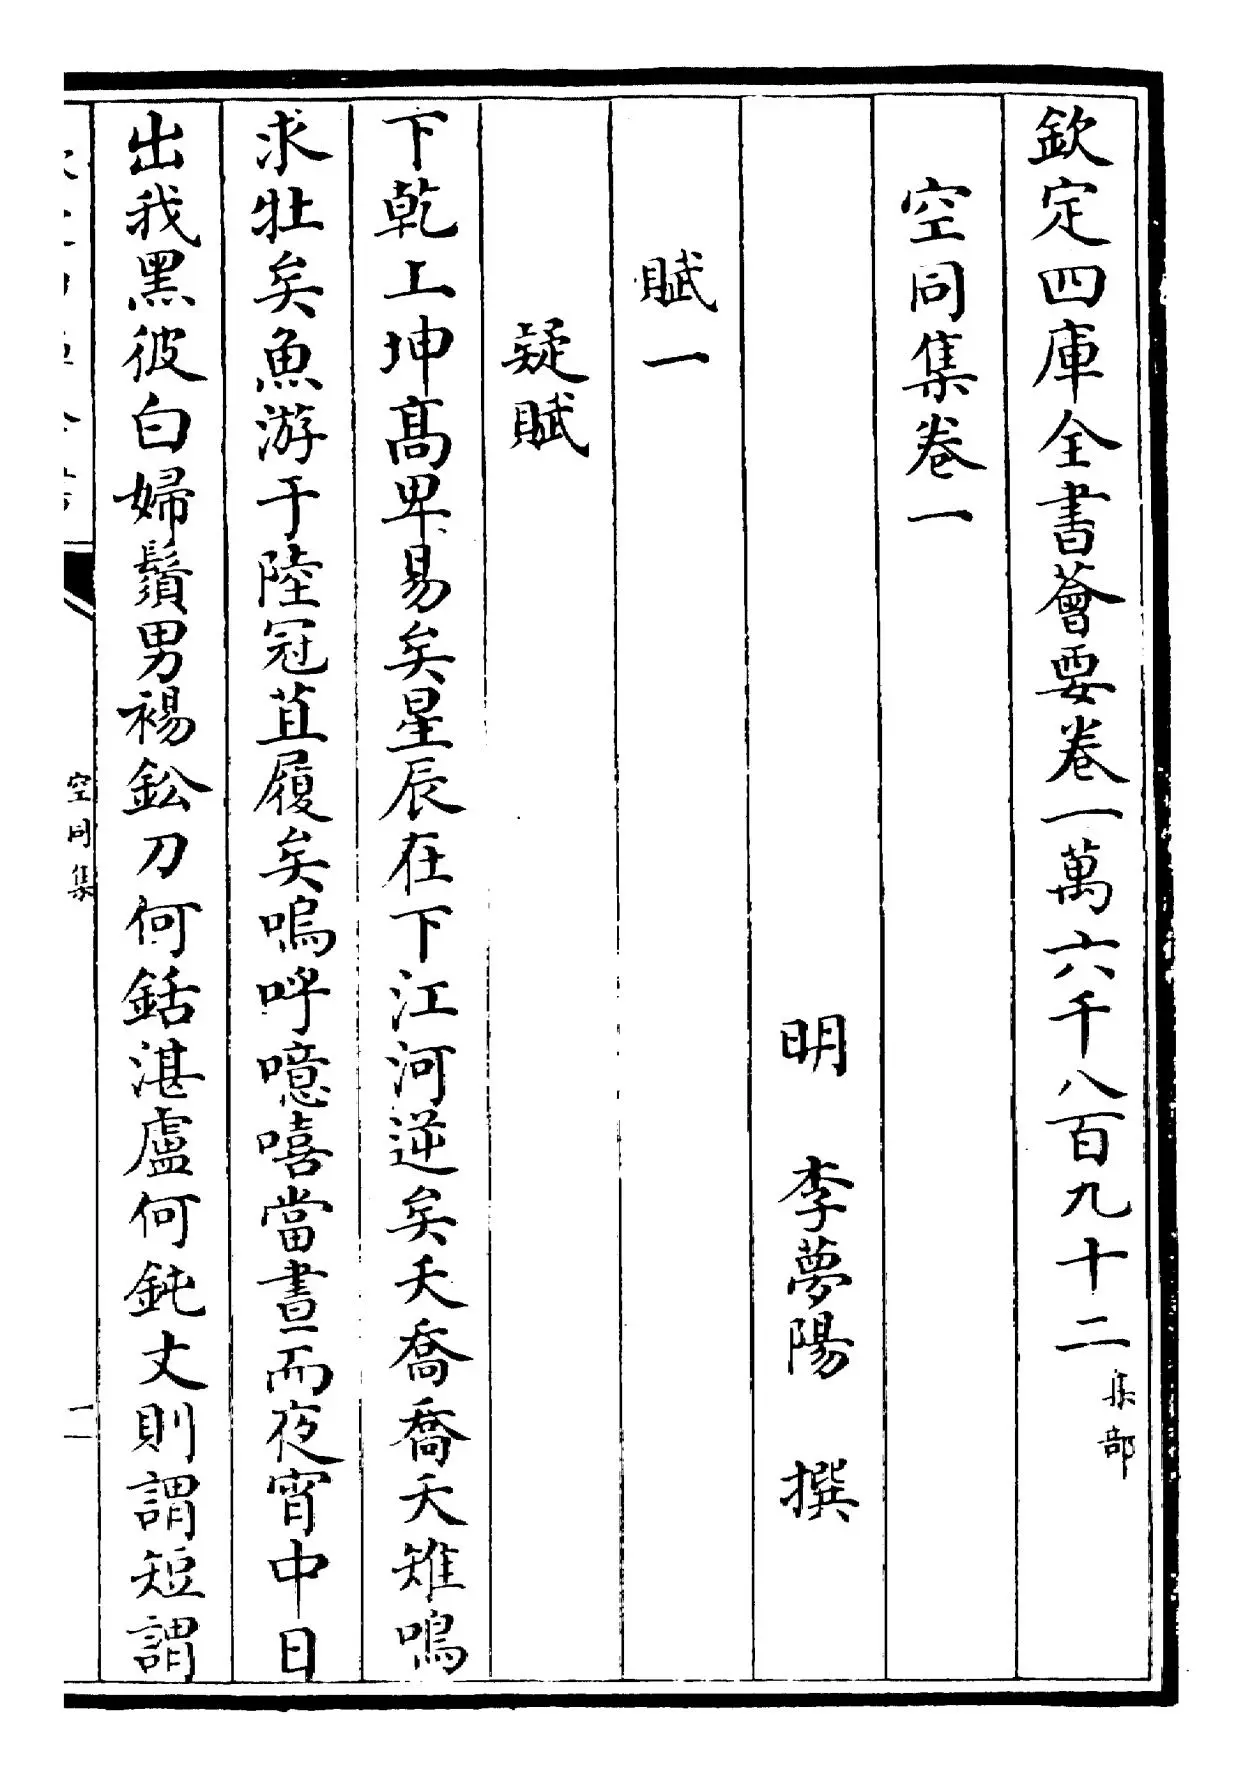 欽定四庫全書薈要卷一萬六千八百九十二集部
空同集卷一
明 李夢陽 撰
賦一
疑賦
下乾上坤高卑易矣星辰在下江河逆矣夭喬喬夭雉鳴
求牡矣魚游于陸冠苴履矣嗚呼噫嘻當晝而夜宵中日
出我黑彼白婦鬚男裼鈆刀何銛湛盧何鈍丈則謂短謂
空同集
一